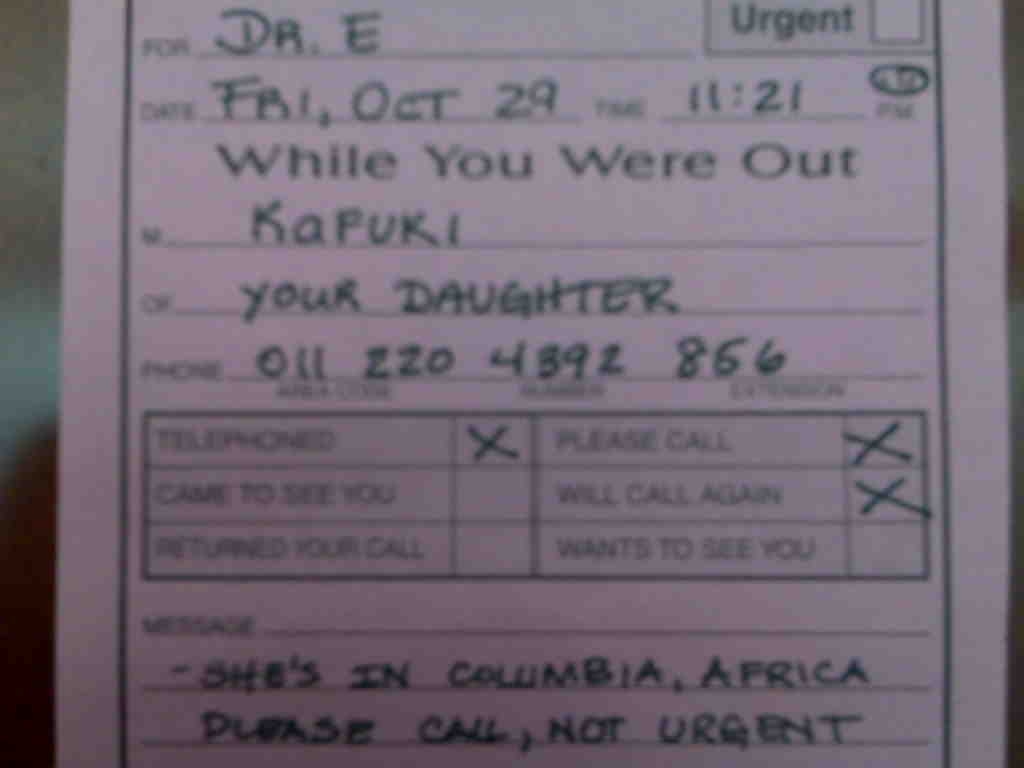 Urgent
FOR DR. E
DATE FRI, OCT 29 TIME 11:21 P.M.
While You Were Out
M KaFUKI
OF YOUR DAUGHTER
PHONE 011 220 4392 856
AREA CODE NUMBER EXTENSION
TELEPHONED X PLEASE CALL X
CAME TO SEE YOU WILL CALL AGAIN X
RETURNED YOUR CALL WANTS TO SEE YOU
MESSAGE
- SHE'S IN COLUMBIA, AFRICA
PLEASE CALL, NOT URGENT